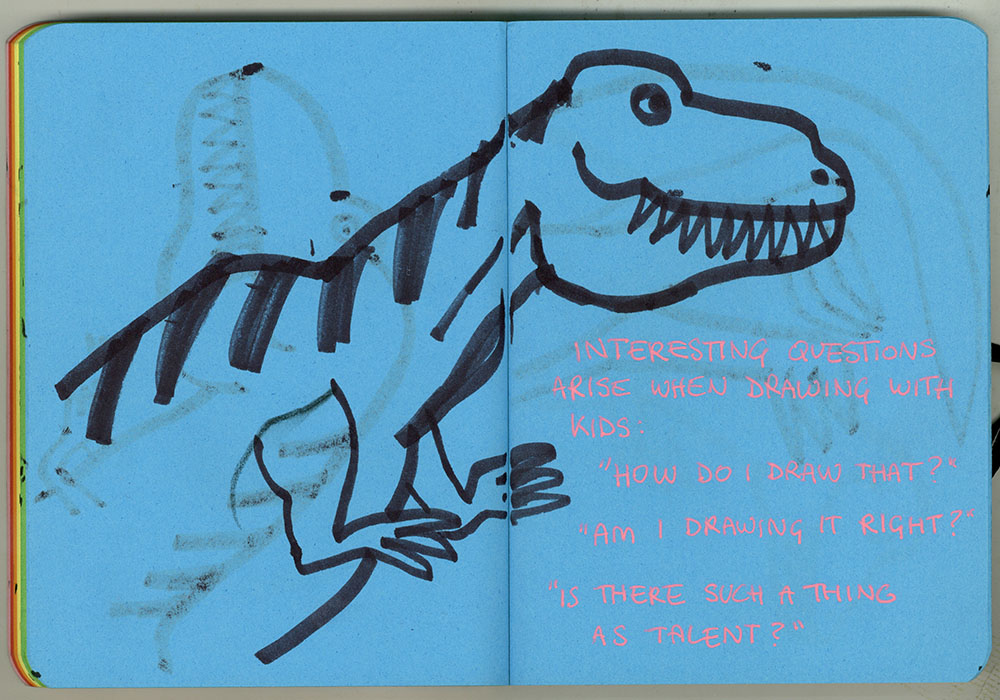 INTERESTING QUESTIONS
ARISE WHEN DRAWING WITH
KIDS:
"HOW DO I DRAW THAT?"
"AM I DRAWING IT RIGHT?"
"IS THERE SUCH A THING
AS TALENT?"